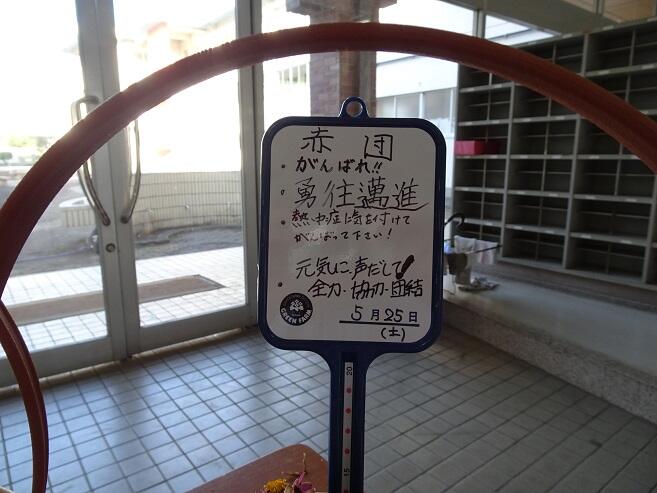 赤団
・がんばれ!!
・勇往邁進
・熱中症に気を付けて
がんばって下さい!
・元気に声だして!
全力・協力・団結
5月25日
(土)
GREEN FARM
20
15